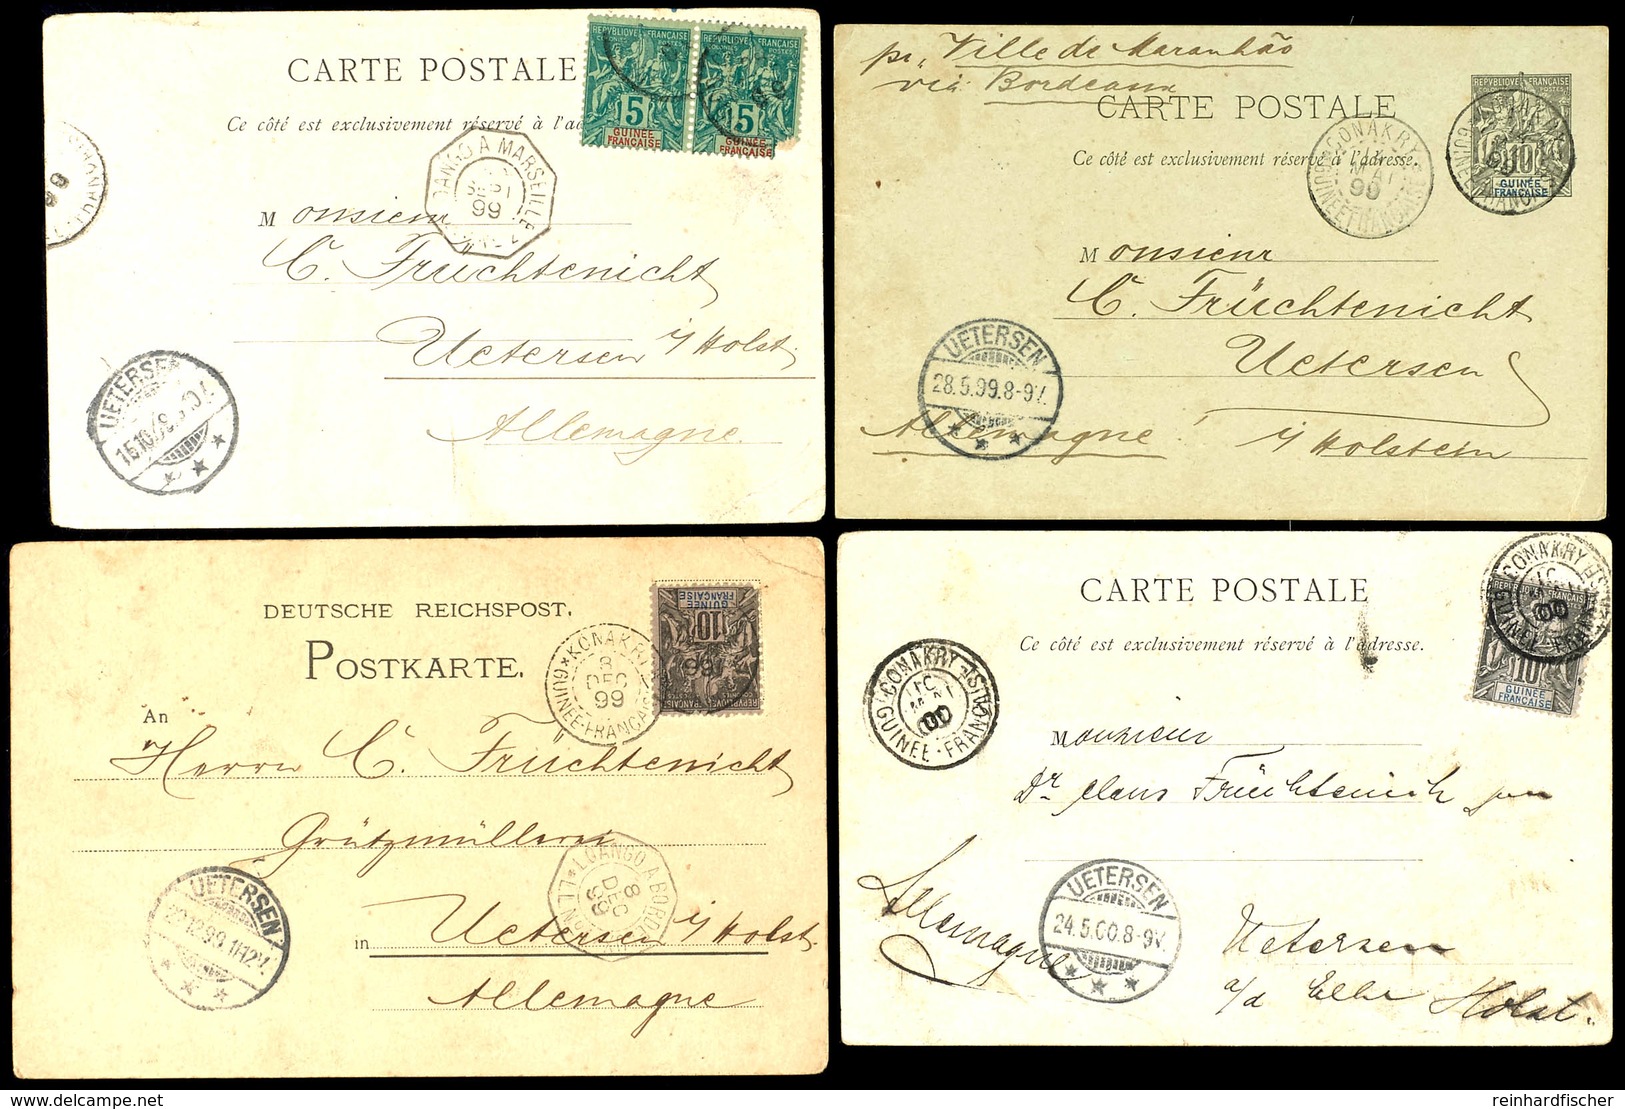 CARTE POSTALE
Ce côté est exclusivement réservé à l'a
REPVBLIQVE FRANÇAISE
COLONIES POSTES
5
GUINÉE
FRANÇAISE
REPVBLIQVE FRANÇAISE
COLONIES POSTES
5
GUINÉE
FRANÇAISE
LOANGO A MARSEILLE
99
Monsieur
C. Früchtenicht
Uetersen i/Holst.
Allemagne.
UETERSEN
15.10.99
pr. Ville de Maranhão
via Bordeaux
CARTE POSTALE
Ce côté est exclusivement réservé à l'adresse.
REPVBLIQVE FRANÇAISE
10
GUINÉE
FRANÇAISE
CONAKRY
MAI
99
GUINÉE FRANÇAISE
Monsieur
C. Früchtenicht
Uetersen
i/Holstein
Allemagne!
UETERSEN
28.5.99.8-9V.
DEUTSCHE REICHSPOST.
POSTKARTE.
10
GUINÉE
FRANÇAISE
KONAKRY
8
DEC
99
GUINÉE-FRANÇAISE
An
Herrn C. Früchtenicht
Grützmüllerei
in Uetersen i/Holst.
Allemagne
LOANGO A BORDEAUX
8
DEC
99
UETERSEN
99 11-12V.
CARTE POSTALE
Ce côté est exclusivement réservé à l'adresse.
REPVBLIQVE FRANÇAISE
10
GUINÉE
FRANÇAISE
CONAKRY
00
GUINÉE-FRANÇAISE
CONAKRY
00
GUINÉE-FRANÇAISE
Monsieur
Dr. Claus Früchtenich
Allemagne
Uetersen
a/d Elbe Holst.
UETERSEN
24.5.00.8-9V.
reinhardfischer